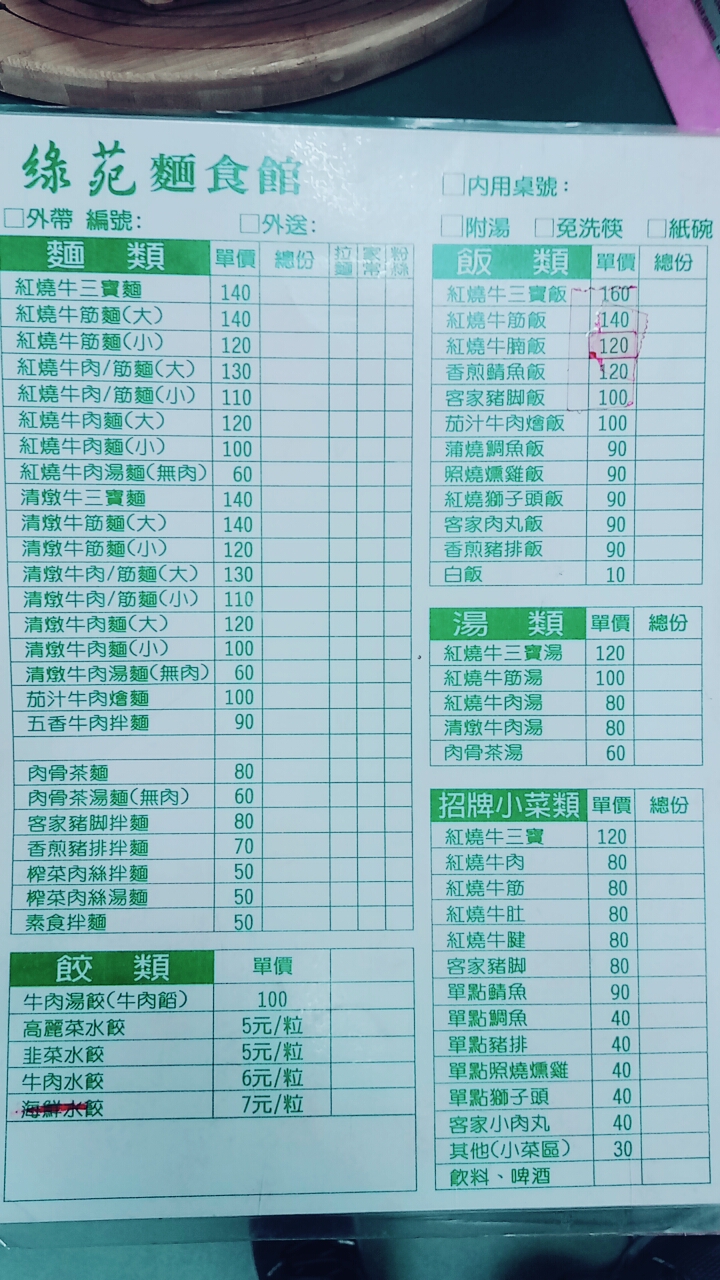 綠苑麵食館
□內用桌號：
□外帶 編號：　□外送：
□附湯 □免洗筷 □紙碗
麵 類 單價 總份 拉麵 家常 粉絲
紅燒牛三寶麵 140
紅燒牛筋麵(大) 140
紅燒牛筋麵(小) 120
紅燒牛肉/筋麵(大) 130
紅燒牛肉/筋麵(小) 110
紅燒牛肉麵(大) 120
紅燒牛肉麵(小) 100
紅燒牛肉湯麵(無肉) 60
清燉牛三寶麵 140
清燉牛筋麵(大) 140
清燉牛筋麵(小) 120
清燉牛肉/筋麵(大) 130
清燉牛肉/筋麵(小) 110
清燉牛肉麵(大) 120
清燉牛肉麵(小) 100
清燉牛肉湯麵(無肉) 60
茄汁牛肉燴麵 100
五香牛肉拌麵 90
肉骨茶麵 80
肉骨茶湯麵(無肉) 60
客家豬脚拌麵 80
香煎豬排拌麵 70
榨菜肉絲拌麵 50
榨菜肉絲湯麵 50
素食拌麵 50
餃 類 單價
牛肉湯餃(牛肉餡) 100
高麗菜水餃 5元/粒
韭菜水餃 5元/粒
牛肉水餃 6元/粒
海鮮水餃 7元/粒
飯 類 單價 總份
紅燒牛三寶飯 160
紅燒牛筋飯 140
紅燒牛腩飯 120
香煎鯖魚飯 120
客家豬脚飯 100
茄汁牛肉燴飯 100
蒲燒鯛魚飯 90
照燒燻雞飯 90
紅燒獅子頭飯 90
客家肉丸飯 90
香煎豬排飯 90
白飯 10
湯 類 單價 總份
紅燒牛三寶湯 120
紅燒牛筋湯 100
紅燒牛肉湯 80
清燉牛肉湯 80
肉骨茶湯 60
招牌小菜類 單價 總份
紅燒牛三寶 120
紅燒牛肉 80
紅燒牛筋 80
紅燒牛肚 80
紅燒牛腱 80
客家豬脚 80
單點鯖魚 90
單點鯛魚 40
單點豬排 40
單點照燒燻雞 40
單點獅子頭 40
客家小肉丸 40
其他(小菜區) 30
飲料、啤酒